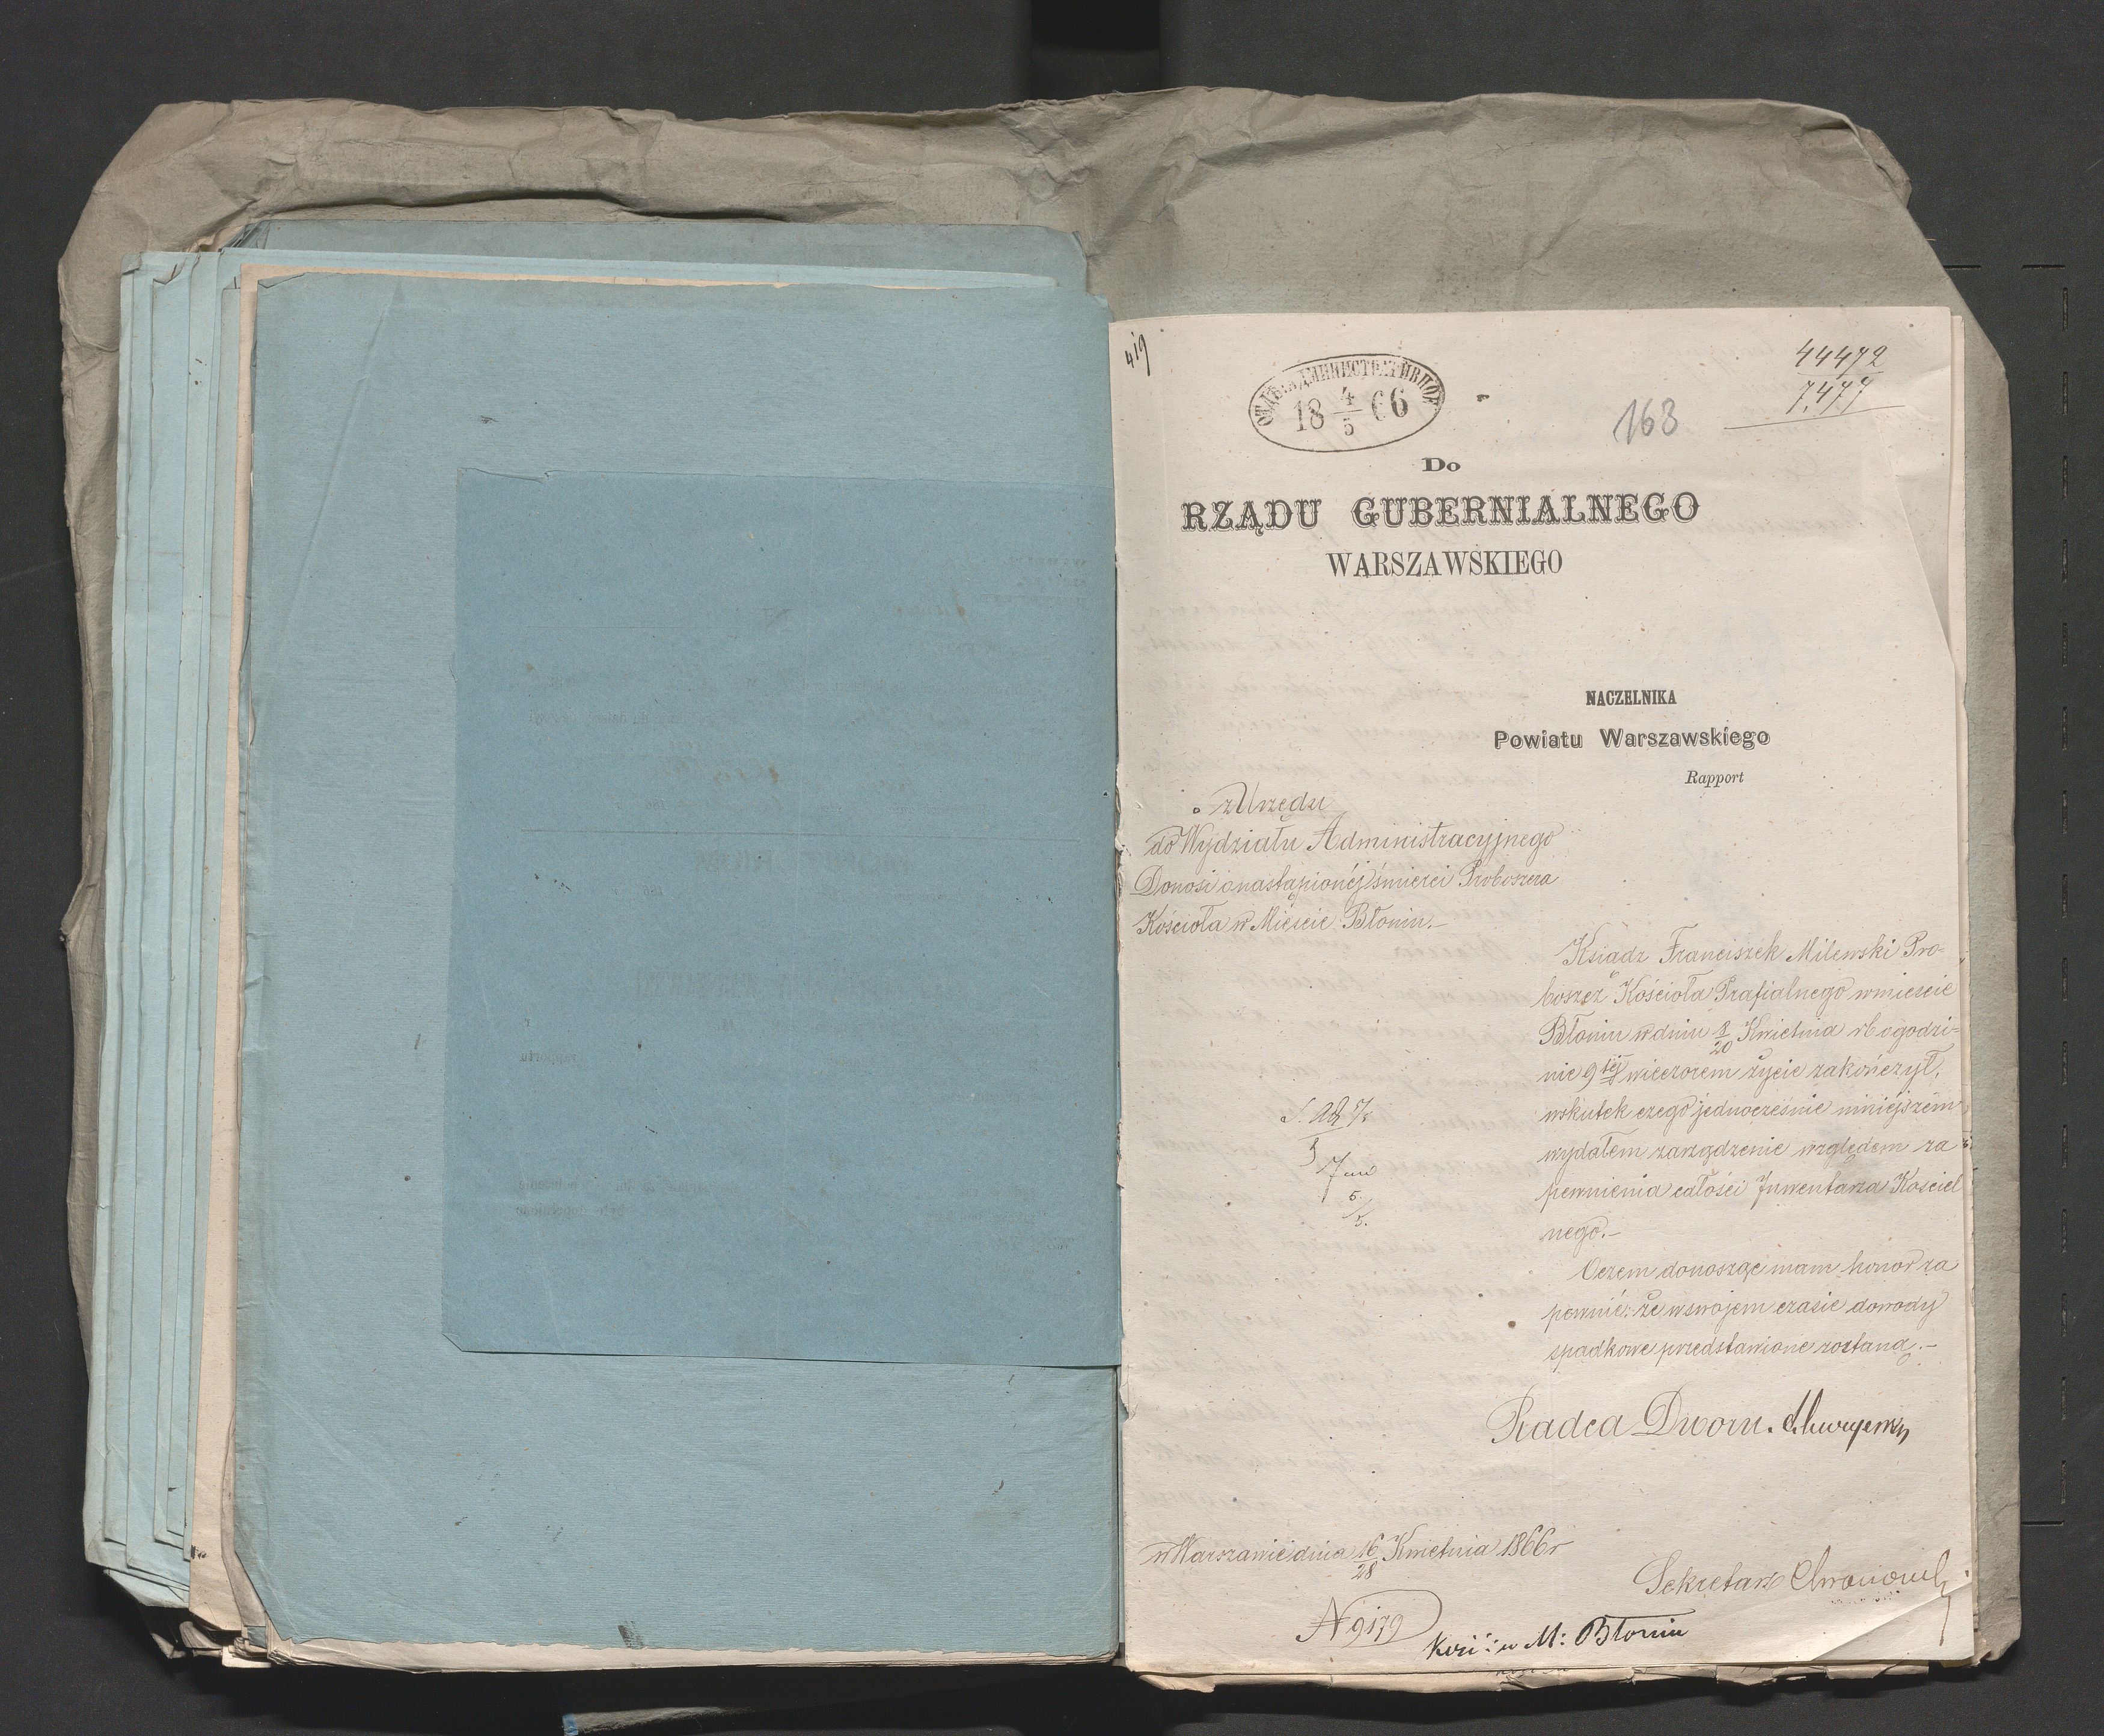 419
44472
7.477
ОТДѢЛ. АДМИНИСТРАТИВНОЕ
18 4/5 66
168
Do
RZĄDU GUBERNIALNEGO
WARSZAWSKIEGO
NACZELNIKA
Powiatu Warszawskiego
Rapport
z Urzędu
do Wydziału Administracyjnego
Donosi o nastąpionéj śmierci Proboszcza
Kościoła w Mieście Błoniu.-
Ksiądz Franciszek Milewski Pro-
boszcz Kościoła Prafialnego w mieście
Błoniu w dniu 8/20 Kwietnia rb o godzi-
nie 9téj wieczorem życie zakończył,
wskutek czego jednocześnie niniéjszém
wydałem zarządzenie względem za
pewnienia całości Inwentarza Kościel
nego.-
O czem donosząc mam honor za
pewnić: że w swojem czasie dowody
spadkowe przedstawione zostaną.-
Radca Dworu.
w Warszawie dnia 16/28 Kwietnia 1866 r
Sekretarz
N 9179
Koś: w M: Błoniu